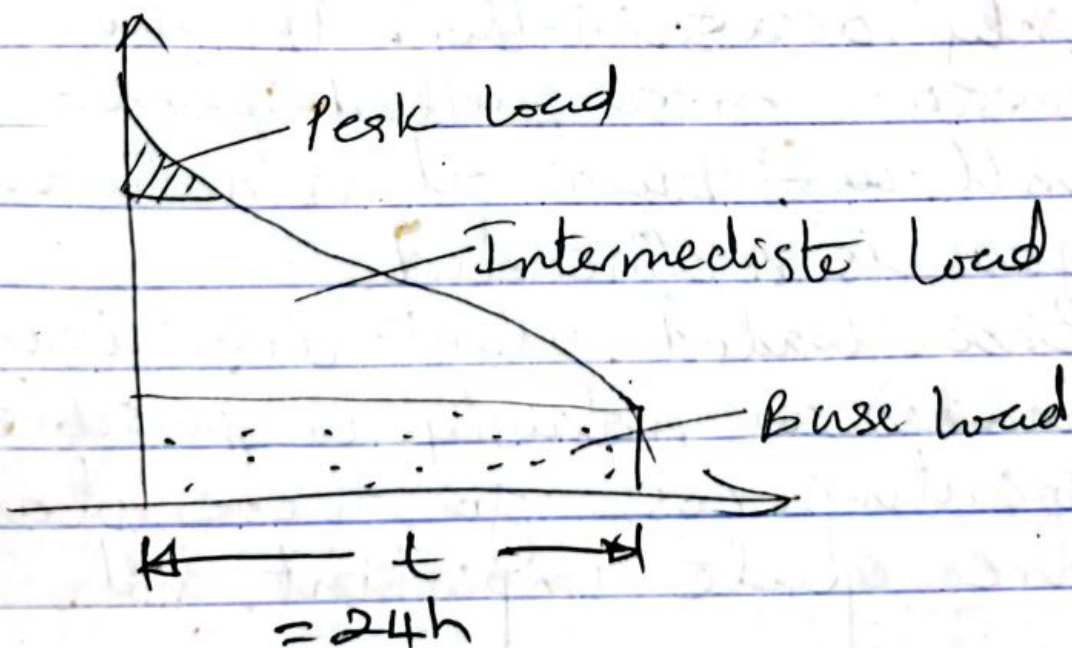 Peak Load
Intermediate Load
Base Load
t
= 24h